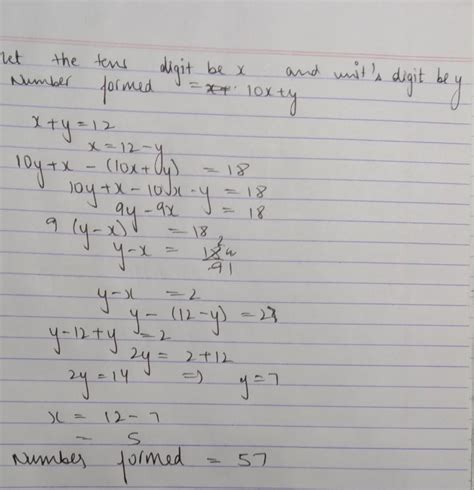 let the tens digit be x and unit's digit be y
Number formed = 10x+y
x+y=12
x=12-y
10y+x - (10x+y) = 18
10y+x-10x-y = 18
9y-9x = 18
9 (y-x) = 18
y-x = 18 2
91
y-x = 2
y- (12-y) = 2
y-12+y = 2
2y = 2+12
2y = 14 => y=7
x = 12-7
= 5
Number formed = 57